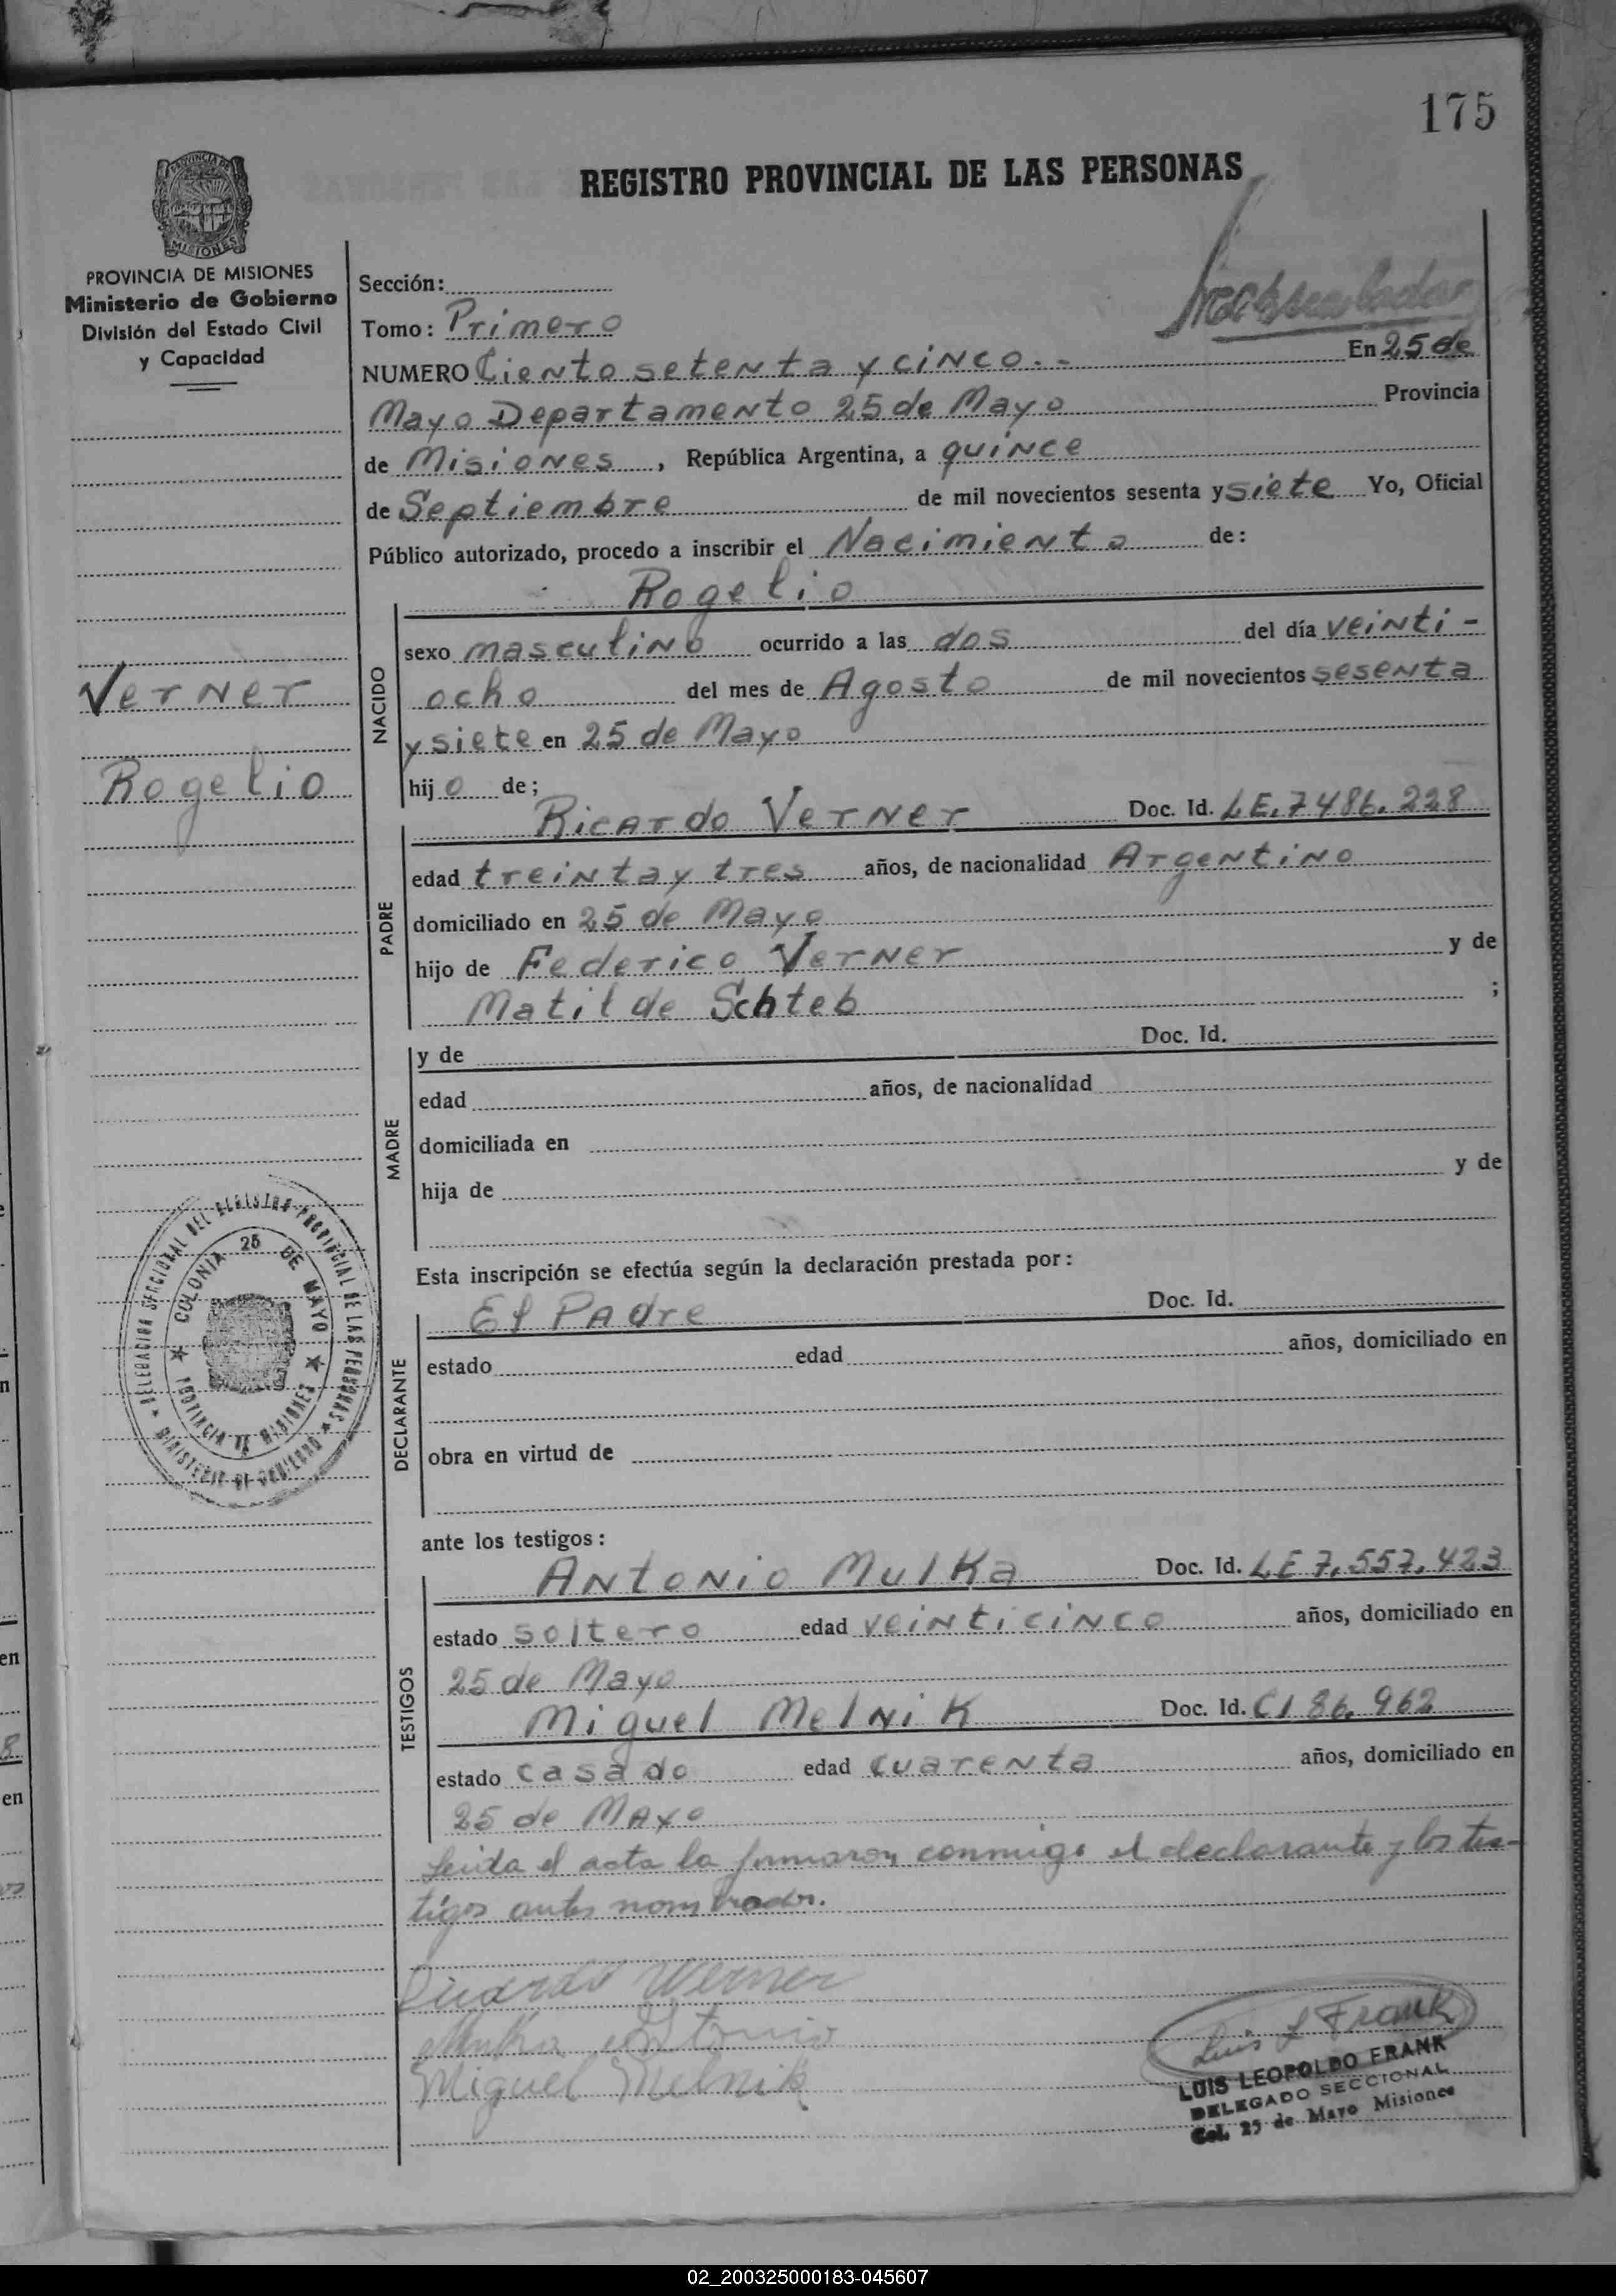 175
REGISTRO PROVINCIAL DE LAS PERSONAS
PROVINCIA DE MISIONES
MISIONES
PROVINCIA DE MISIONES
Ministerio de Gobierno
División del Estado Civil
y Capacidad
Sección:
Tomo: Primero
NUMERO Ciento setenta y cinco.- En 25 de
Mayo Departamento 25 de Mayo Provincia
de Misiones, República Argentina, a quince
de Septiembre de mil novecientos sesenta y siete Yo, Oficial
Público autorizado, procedo a inscribir el Nacimiento de:
Verner
Rogelio
NACIDO
Rogelio
sexo masculino ocurrido a las dos del día veinti-
ocho del mes de Agosto de mil novecientos sesenta
y siete en 25 de Mayo
hijo de;
PADRE
Ricardo Verner Doc. Id. LE. 7486.228
edad treinta y tres años, de nacionalidad Argentino
domiciliado en 25 de Mayo
hijo de Federico Verner y de
Matilde Schteb ;
MADRE
y de Doc. Id.
edad años, de nacionalidad
domiciliada en
hija de y de
Esta inscripción se efectúa según la declaración prestada por:
DECLARANTE
El Padre Doc. Id.
estado edad años, domiciliado en
obra en virtud de
DELEGACION SECCIONAL DEL REGISTRO PROVINCIAL DE LAS PERSONAS
MINISTERIO DE GOBIERNO
COLONIA 25 DE MAYO
PROVINCIA DE MISIONES
ante los testigos:
TESTIGOS
Antonio Mulka Doc. Id. LE 7.557.423
estado soltero edad veinticinco años, domiciliado en
25 de Mayo
Miguel Melnik Doc. Id. CI 86.962
estado casado edad cuarenta años, domiciliado en
25 de Mayo
Leida el acta la firmaron conmigo el declarante y los tes-
tigos antes nombrados.
Ricardo Werner
Mulka Antonio
Miguel Melnik
Luis L Frank
LUIS LEOPOLDO FRANK
DELEGADO SECCIONAL
Col. 25 de Mayo Misiones
02_200325000183-045607